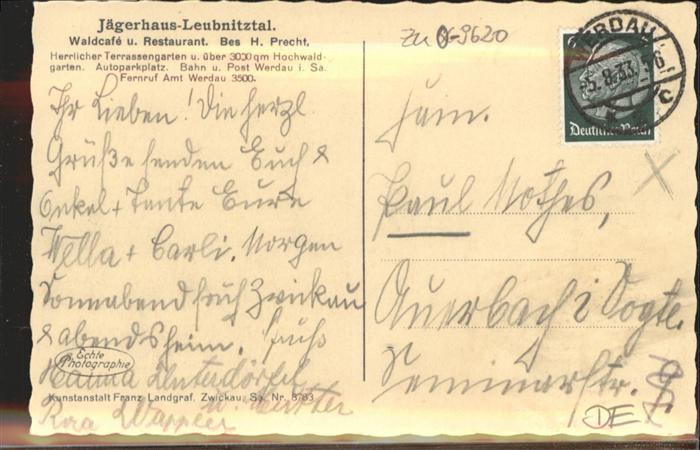 Jägerhaus-Leubnitztal.
Waldcafé u. Restaurant. Bes H. Precht.
Herrlicher Terrassengarten u. über 3000 qm Hochwald-
garten. Autoparkplatz. Bahn u. Post Werdau i. Sa.
Fernruf Amt Werdau 3500.
Ihr Lieben! Die herzl.
Grüße senden Euch
Onkel + Tante Eure
Wella + Carli. Morgen
Sonnabend früh Zwickau
& abends heim.
Echte
Photographie
Kunstanstalt Franz Landgraf. Zwickau. Sa. Nr. 8763
Hanna
Mutter
zu 0-9620
WERDAU
5.8.33.
c
Deutsches Reich
Fam.
Paul Nothes,
Auerbach i Vogtl.
Seminarstr.
DE